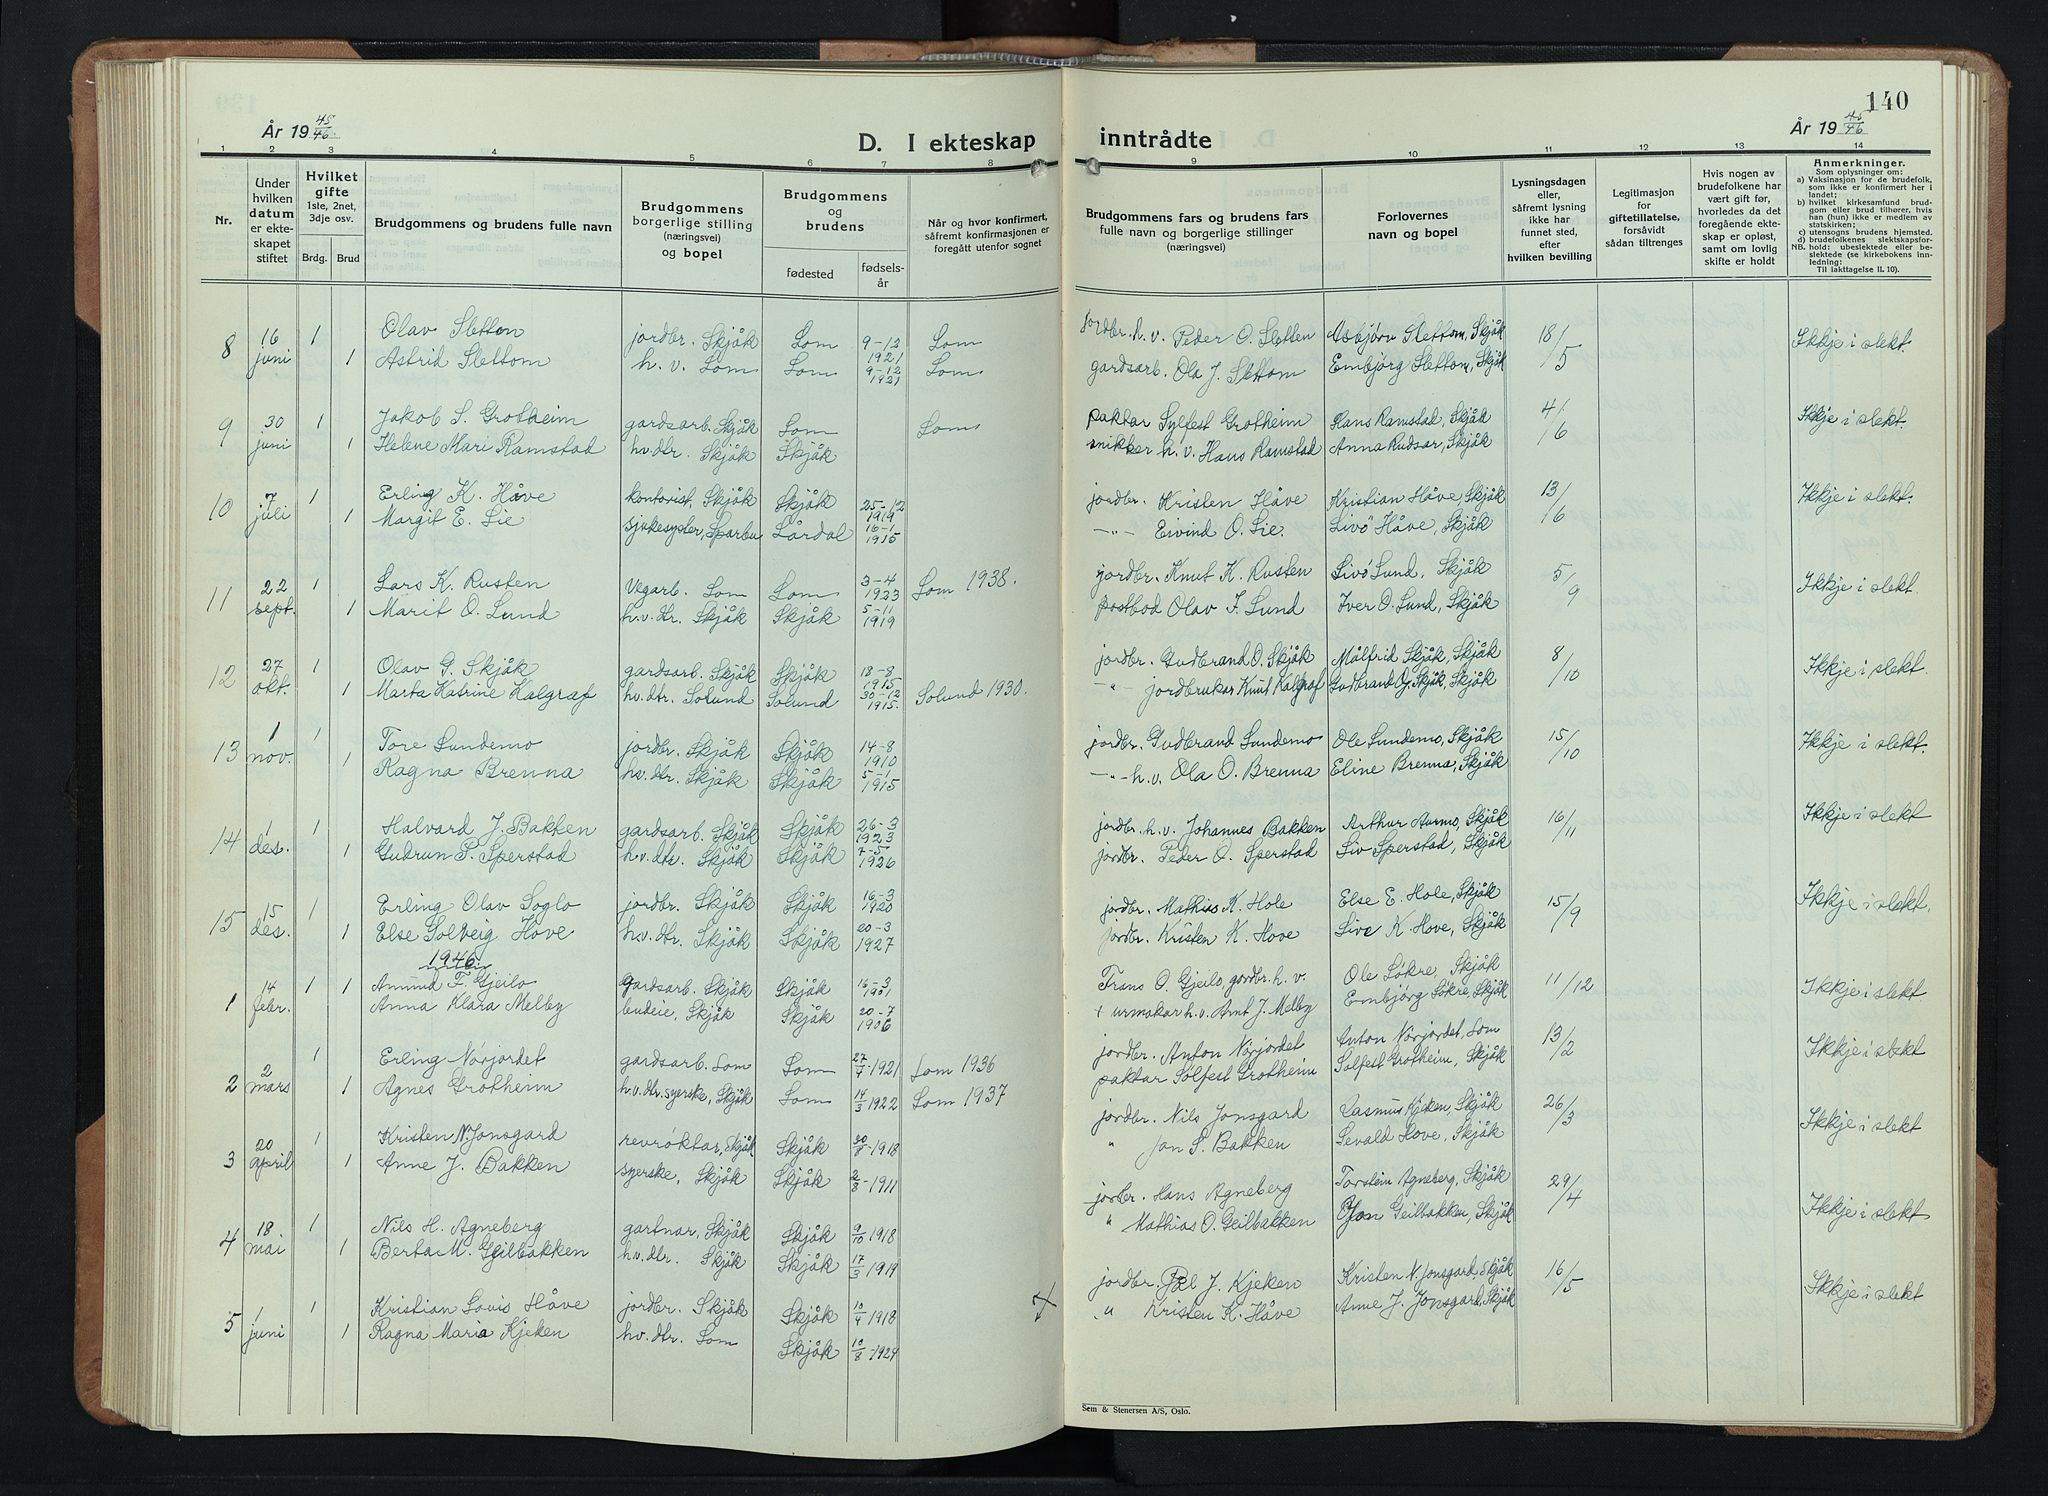 140
År 19 45/46
D. I ekteskap inntrådte
År 19 45/46
1 2 3 4 5 6 7 8 9 10 11 12 13 14
Nr.
Under hvilken datum er ekteskapet stiftet
Hvilket gifte 1ste, 2net, 3dje osv.
Brdg. Brud
Brudgommens og brudens fulle navn
Brudgommens borgerlige stilling (næringsvei) og bopel
Brudgommens og brudens
fødested
fødselsår
Når og hvor konfirmert, såfremt konfirmasjonen er foregått utenfor sognet
Brudgommens fars og brudens fars fulle navn og borgerlige stillinger (næringsvei)
Forlovernes navn og bopel
Lysningsdagen eller, såfremt lysning ikke har funnet sted, efter hvilken bevilling
Legitimasjon for giftetillatelse, forsåvidt sådan tiltrenges
Hvis nogen av brudefolkene har vært gift før, hvorledes da det foregående ekteskap er opløst, samt om lovlig skifte er holdt
Anmerkninger.
Som oplysninger om:
a) Vaksinasjon for de brudefolk, som ikke er konfirmert her i landet;
b) hvilket kirkesamfund brudgom eller brud tilhører, hvis han (hun) ikke er medlem av statskirken;
c) utensogns brudens hjemsted.
d) brudefolkenes slektskapsforhold: ubeslektede eller beslektede (se kirkebokens innledning: Til iakttagelse II. 10).
NB.
8 16 juni 1 Olav Sletten jordbr. Skjåk Lom 9-12 1921 Lom jordbr. h.v. Peder O. Sletten Asbjörn Slettom, Skjåk 18/5 Ikkje i slekt.
1 Astrid Slettom h.v. Lom Lom 9-12 1921 Lom gardsarb. Ola J. Slettom Embjörg Slettom, Skjåk
9 30 juni 1 Jakob S. Grotheim gardsarb. Skjåk Lom Lom paktar Sylfest Grotheim Hans Ramstad, Skjåk 4/6 Ikkje i slekt.
1 Helene Mari Ramstad hv. dtr. Skjåk Skjåk snikker h.v. Hans Ramstad Anna Rudsar, Skjåk
10 7 juli 1 Erling K. Håve kontorist, Skjåk Skjåk 25-12 1919 jordbr. Kristen Håve Kristian Håve, Skjåk 13/6 Ikkje i slekt.
1 Margit E. Lie sjukesyster, Sparbu Lårdal 16-1 1915 -"- Eivind O. Lie. Livö Håve, Skjåk
11 22 sept. 1 Lars K. Rusten Vegarb. Lom Lom 3-4 1923 Lom 1938. jordbr. Knut K. Rusten Livö Lund, Skjåk 5/9 Ikkje i slekt.
1 Marit O. Lund h.v. dtr. Skjåk Skjåk 5-11 1919 postbod Olav I. Lund Iver O. Lund, Skjåk
12 27 okt. 1 Olav G. Skjåk gardsarb. Skjåk Skjåk 18-8 1915 jordbr. Gudbrand O. Skjåk Målfrid Skjåk, Skjåk 8/10 Ikkje i slekt.
1 Marta Katrine Kalgraf hv. dtr. Solund Solund 30-12 1915. Solund 1930. -"- jordbruker Knut Kalgraf Gudbrand O. Skjåk, Skjåk
13 1 nov. 1 Tore Sundemo jordbr. Skjåk Skjåk 14-8 1910 jordbr. Gudbrand Sundemo Ole Sundemo, Skjåk 15/10 Ikkje i slekt.
1 Ragna Brenna hv. dtr. Skjåk Skjåk 5-1 1915 -"- h.v. Ola O. Brenna Eline Brenna, Skjåk
14 1 des. 1 Halvard J. Bakken gardsarb. Skjåk Skjåk 26-3 1923 jordbr. h.v. Johannes Bakken Arthur Aurmo, Skjåk 16/11 Ikkje i slekt
1 Gudrun P. Sperstad h.v. dtr. Skjåk Skjåk 7-5 1926 jordbr. Peder O. Sperstad Liv Sperstad, Skjåk
15 15 des. 1 Erling Olav Soglo jordbr. Skjåk Skjåk 16-3 1920 jordbr. Mathias K. Hole Else E. Hole, Skjåk 15/9 Ikkje i slekt.
1 Else Solveig Hove h.v. dtr. Skjåk Skjåk 20-3 1927 jordbr. Kristen K. Hove Live K. Hove, Skjåk
1946
1 14 febr. 1 1 Amund F. Gjeilo Gardsarb. Skjåk Skjåk 16-3 1901 Frans O. Gjeilo gordbr. h.v. Ole Lökre, Skjåk 11/12 Ikkje i slekt
Anna Klara Melby budeie, Skjåk Skjåk 20-7 1906 + urmakar h.v. Arnt J. Melby Embjörg Lökre, Skjåk
2 2 mars 1 Erling Nörjordet gardsarb. Lom Lom 27/7-1921 Lom 1936 jordbr. Anton Nörjordet Anton Nörjordet, Lom 13/2 Ikkje i slekt
1 Agnes Grotheim h.v. dtr. syerske, Skjåk Lom 14/3 1922 Lom 1937 paktar Solfest Grotheim Solfest Grotheim, Skjåk
3 20 april 1 Kristen N. Jonsgard revröktar, Skjåk Skjåk 30/8-1918 jordbr. Nils Jonsgard Rasmus Kjeken, Skjåk 26/3 Ikkje i slekt
1 Anne J. Bakken syerske, Skjåk Skjåk 2/8-1911 " Jon S. Bakken Sevald Hove, Skjåk
4 18 mai 1 Nils H. Agneberg gartnar, Skjåk Skjåk 9/10 1918 jordbr. Hans Agneberg Torstein Agneberg, Skjåk 29/4 Ikkje i slekt
1 Berta M. Geilbakken hv. dtr. Skjåk Skjåk 17/3 1919 " Mathias O. Geilbakken Geilbakken, Skjåk
5 1 juni 1 Kristian Lovis Håve jordbr. Skjåk Skjåk 10/4 1918 jordbr. Pål J. Kjeken Kristen N. Jonsgard, Skjåk 16/5 Ikkje i slekt
1 Ragna Maria Kjeken hv. dtr. Lom Skjåk 10/8-1924 " Kristen K. Håve Anne J. Jonsgard, Skjåk
Sem & Stenersen A/S, Oslo.